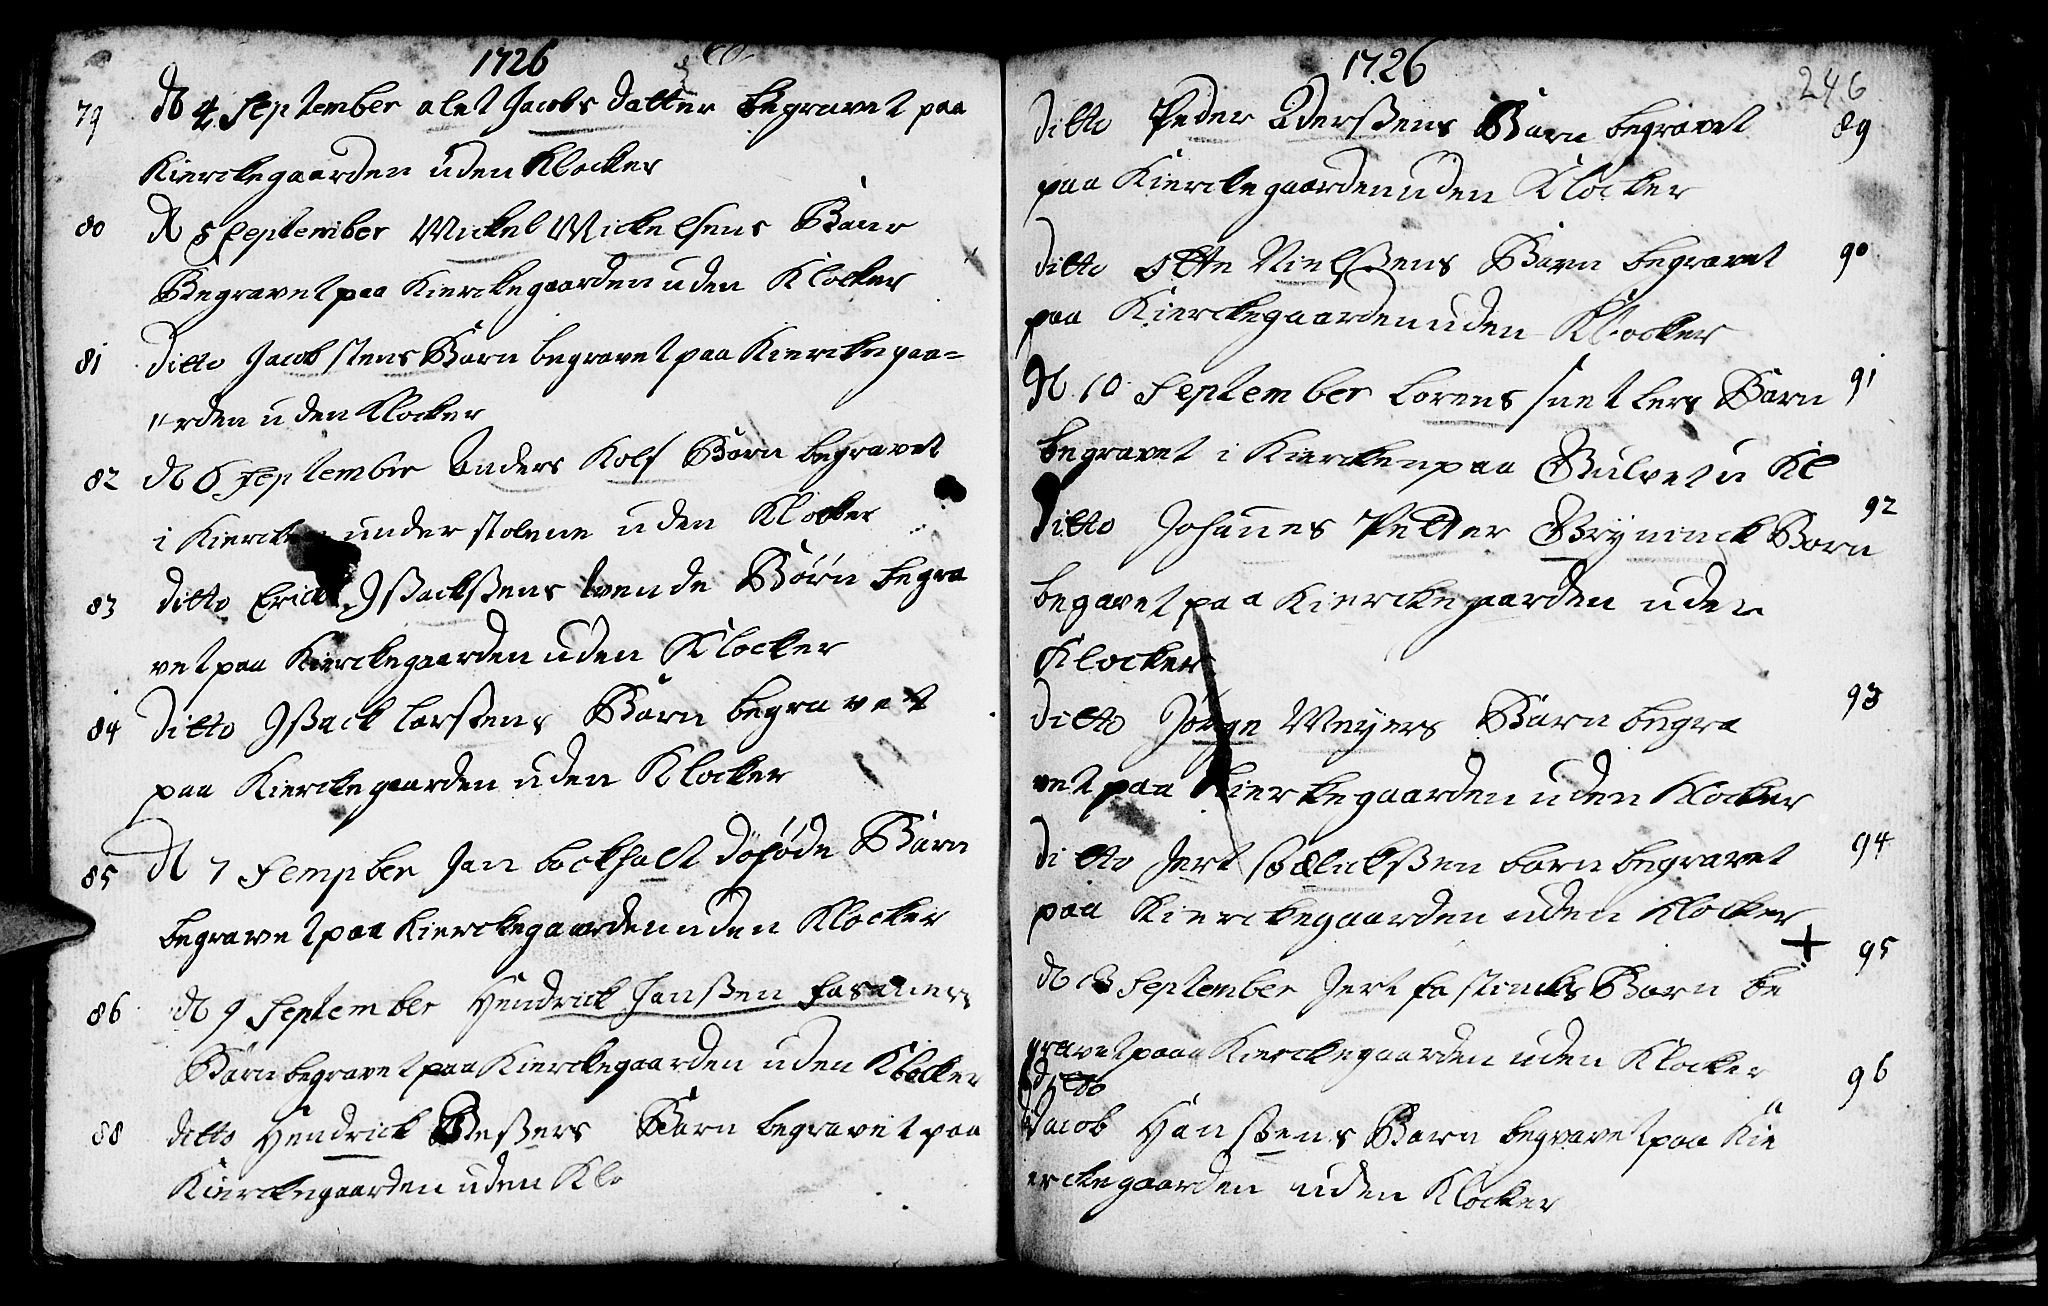 1726
79 dl 4 September alet Jacobs datter begravet paa
Kierckegaarden uden Klocker
80 dl 5 September Mickel Mickelsens Barn
Begravet paa Kierckegaarden uden Klocker
81 ditto Jacob stens Barn begravet paa Kierckegaa=
"rden uden Klocker
82 dl 6 September Anders Kolf Barn begravet
i Kiercken under stolene uden Klocker
83 ditto Erick Jßackßens tvende Børn begra
vet paa Kierckegaarden uden Klocker
84 ditto Jßack larßens Barn begravet
paa Kierckegaarden uden Klocker
85 dl 7 Sempber Jan bockhalt Barn
begravet paa Kierckegaarden uden Klocker
86 dl 9 September Hendrick Hanßen
Barn begravet paa Kierckegaarden uden Klocker
88 ditto Hendrick Beßers Barn begravet paa
Kierckegaarden uden Klo
1726
246
ditto Peder Barn begravet 89
paa Kierckegaarden uden Klocker
ditto Otte Nielßens Barn begravet 90
paa Kierckegaarden uden Klocker
dl 10 September Lorens snetlers Barn 91
begravet i Kiercken paa Gulvet u Kl
ditto Johannes Petter Barn 92
begavet paa Kierckegaarden uden
Klocker
ditto Jørgen Meyers Barn begra 93
vet paa Kierkegaarden uden Klocker
ditto Jert barn begravet 94
paa Kierckegaarden uden Klocker
+
dl September Jert Barn be 95
gravet paaa Kierckegaarden uden Klocker
ditto
Jacob Hanßens Barn begravet paa Kie 96
erckegaarden uden Klocker